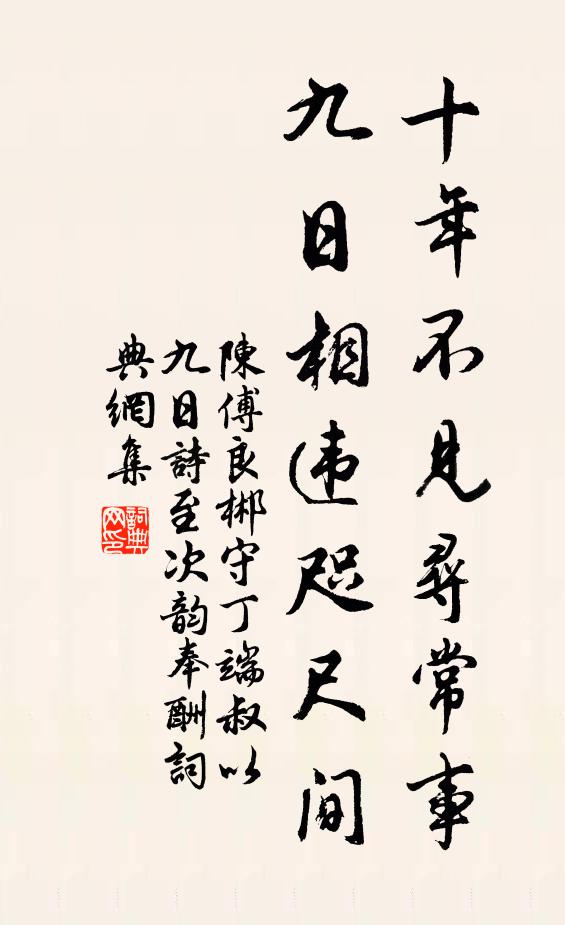 十年不见尋常事
九日相违咫尺间
陳傅良郴守丁端叔以
九日詩至次韵奉酬詞
典網集
詞典
网印